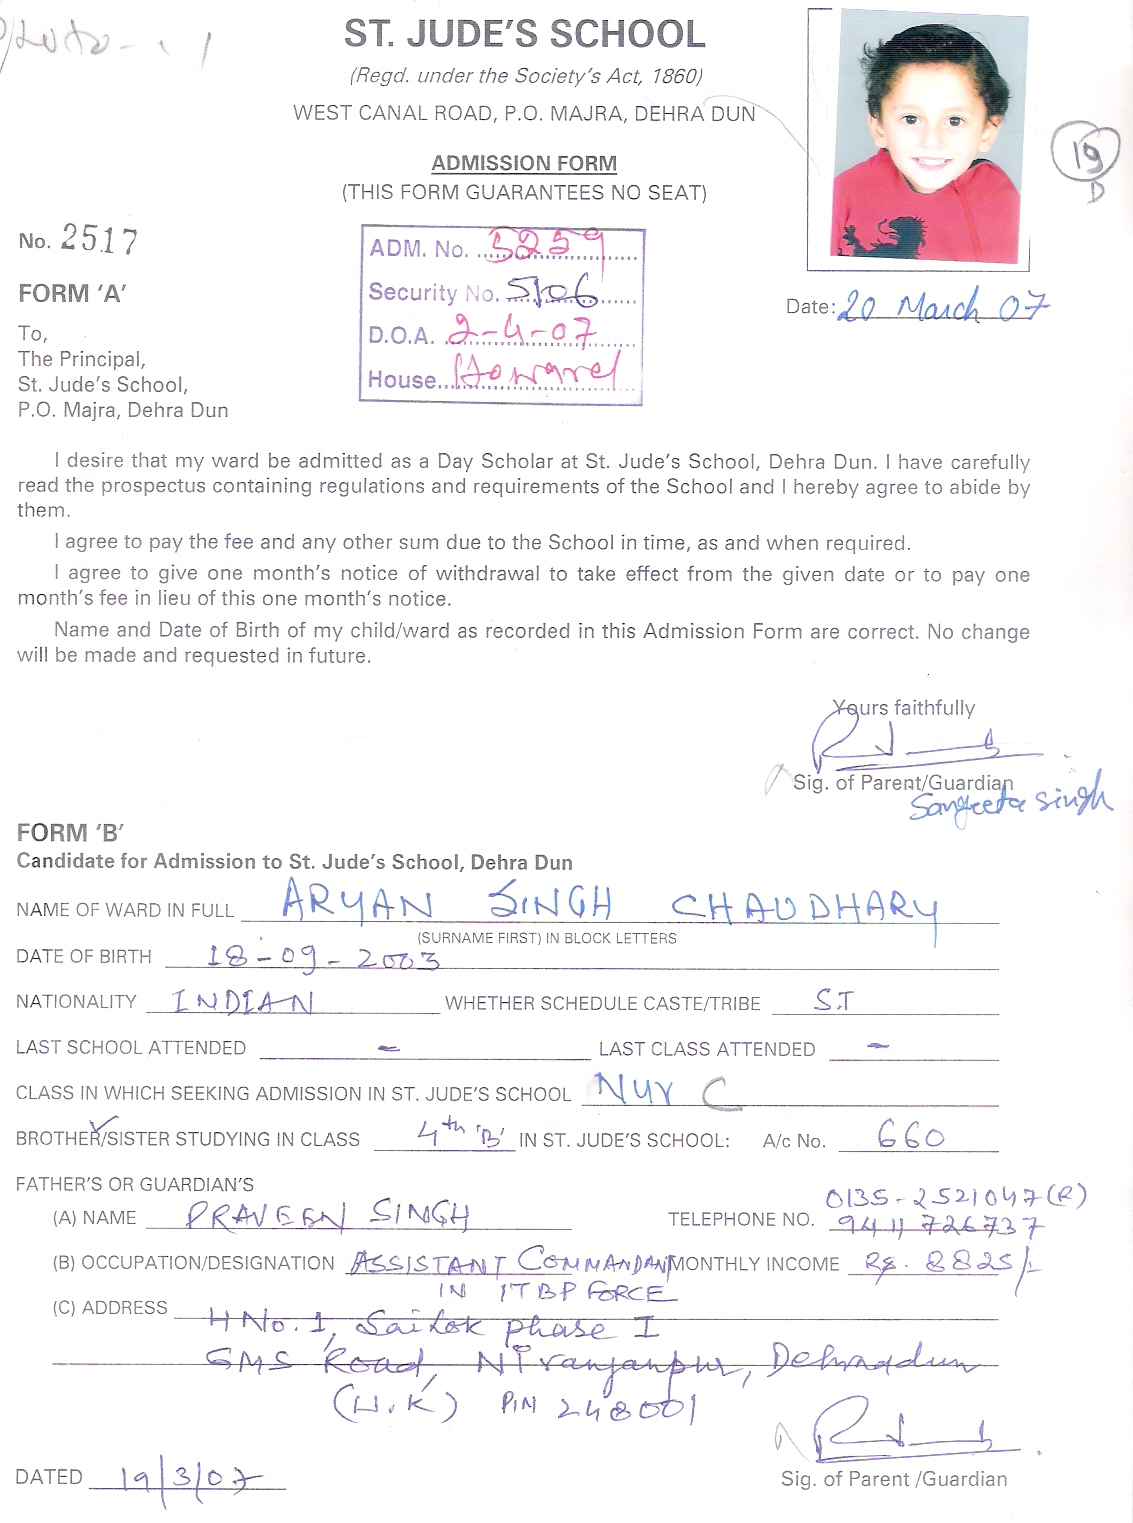 ST. JUDE'S SCHOOL
(Regd. under the Society's Act, 1860)
WEST CANAL ROAD, P.O. MAJRA, DEHRA DUN
ADMISSION FORM
(THIS FORM GUARANTEES NO SEAT)
19
D
No. 2517
ADM. No. 5259
Security No. 5106
D.O.A. 2-4-07
House Howard
Date: 20 March 07
FORM 'A'
To,
The Principal,
St. Jude's School,
P.O. Majra, Dehra Dun
I desire that my ward be admitted as a Day Scholar at St. Jude's School, Dehra Dun. I have carefully
read the prospectus containing regulations and requirements of the School and I hereby agree to abide by
them.
I agree to pay the fee and any other sum due to the School in time, as and when required.
I agree to give one month's notice of withdrawal to take effect from the given date or to pay one
month's fee in lieu of this one month's notice.
Name and Date of Birth of my child/ward as recorded in this Admission Form are correct. No change
will be made and requested in future.
Yours faithfully
Sig. of Parent/Guardian
Sangeeta Singh
FORM 'B'
Candidate for Admission to St. Jude's School, Dehra Dun
NAME OF WARD IN FULL ARYAN SINGH CHAUDHARY
(SURNAME FIRST) IN BLOCK LETTERS
DATE OF BIRTH 18-09-2003
NATIONALITY INDIAN WHETHER SCHEDULE CASTE/TRIBE S.T
LAST SCHOOL ATTENDED - LAST CLASS ATTENDED -
CLASS IN WHICH SEEKING ADMISSION IN ST. JUDE'S SCHOOL Nur C
BROTHER/SISTER STUDYING IN CLASS 4th 'B' IN ST. JUDE'S SCHOOL: A/c No. 660
FATHER'S OR GUARDIAN'S
0135-2521047(R)
(A) NAME PRAVEEN SINGH TELEPHONE NO. 9411726737
(B) OCCUPATION/DESIGNATION ASSISTANT COMMANDANT MONTHLY INCOME Rs. 8825/-
IN ITBP FORCE
(C) ADDRESS H No. 1, Sailok phase I
GMS Road, Niranjanpur, Dehradun
(U.K) PIN 248001
DATED 19/3/07
Sig. of Parent /Guardian